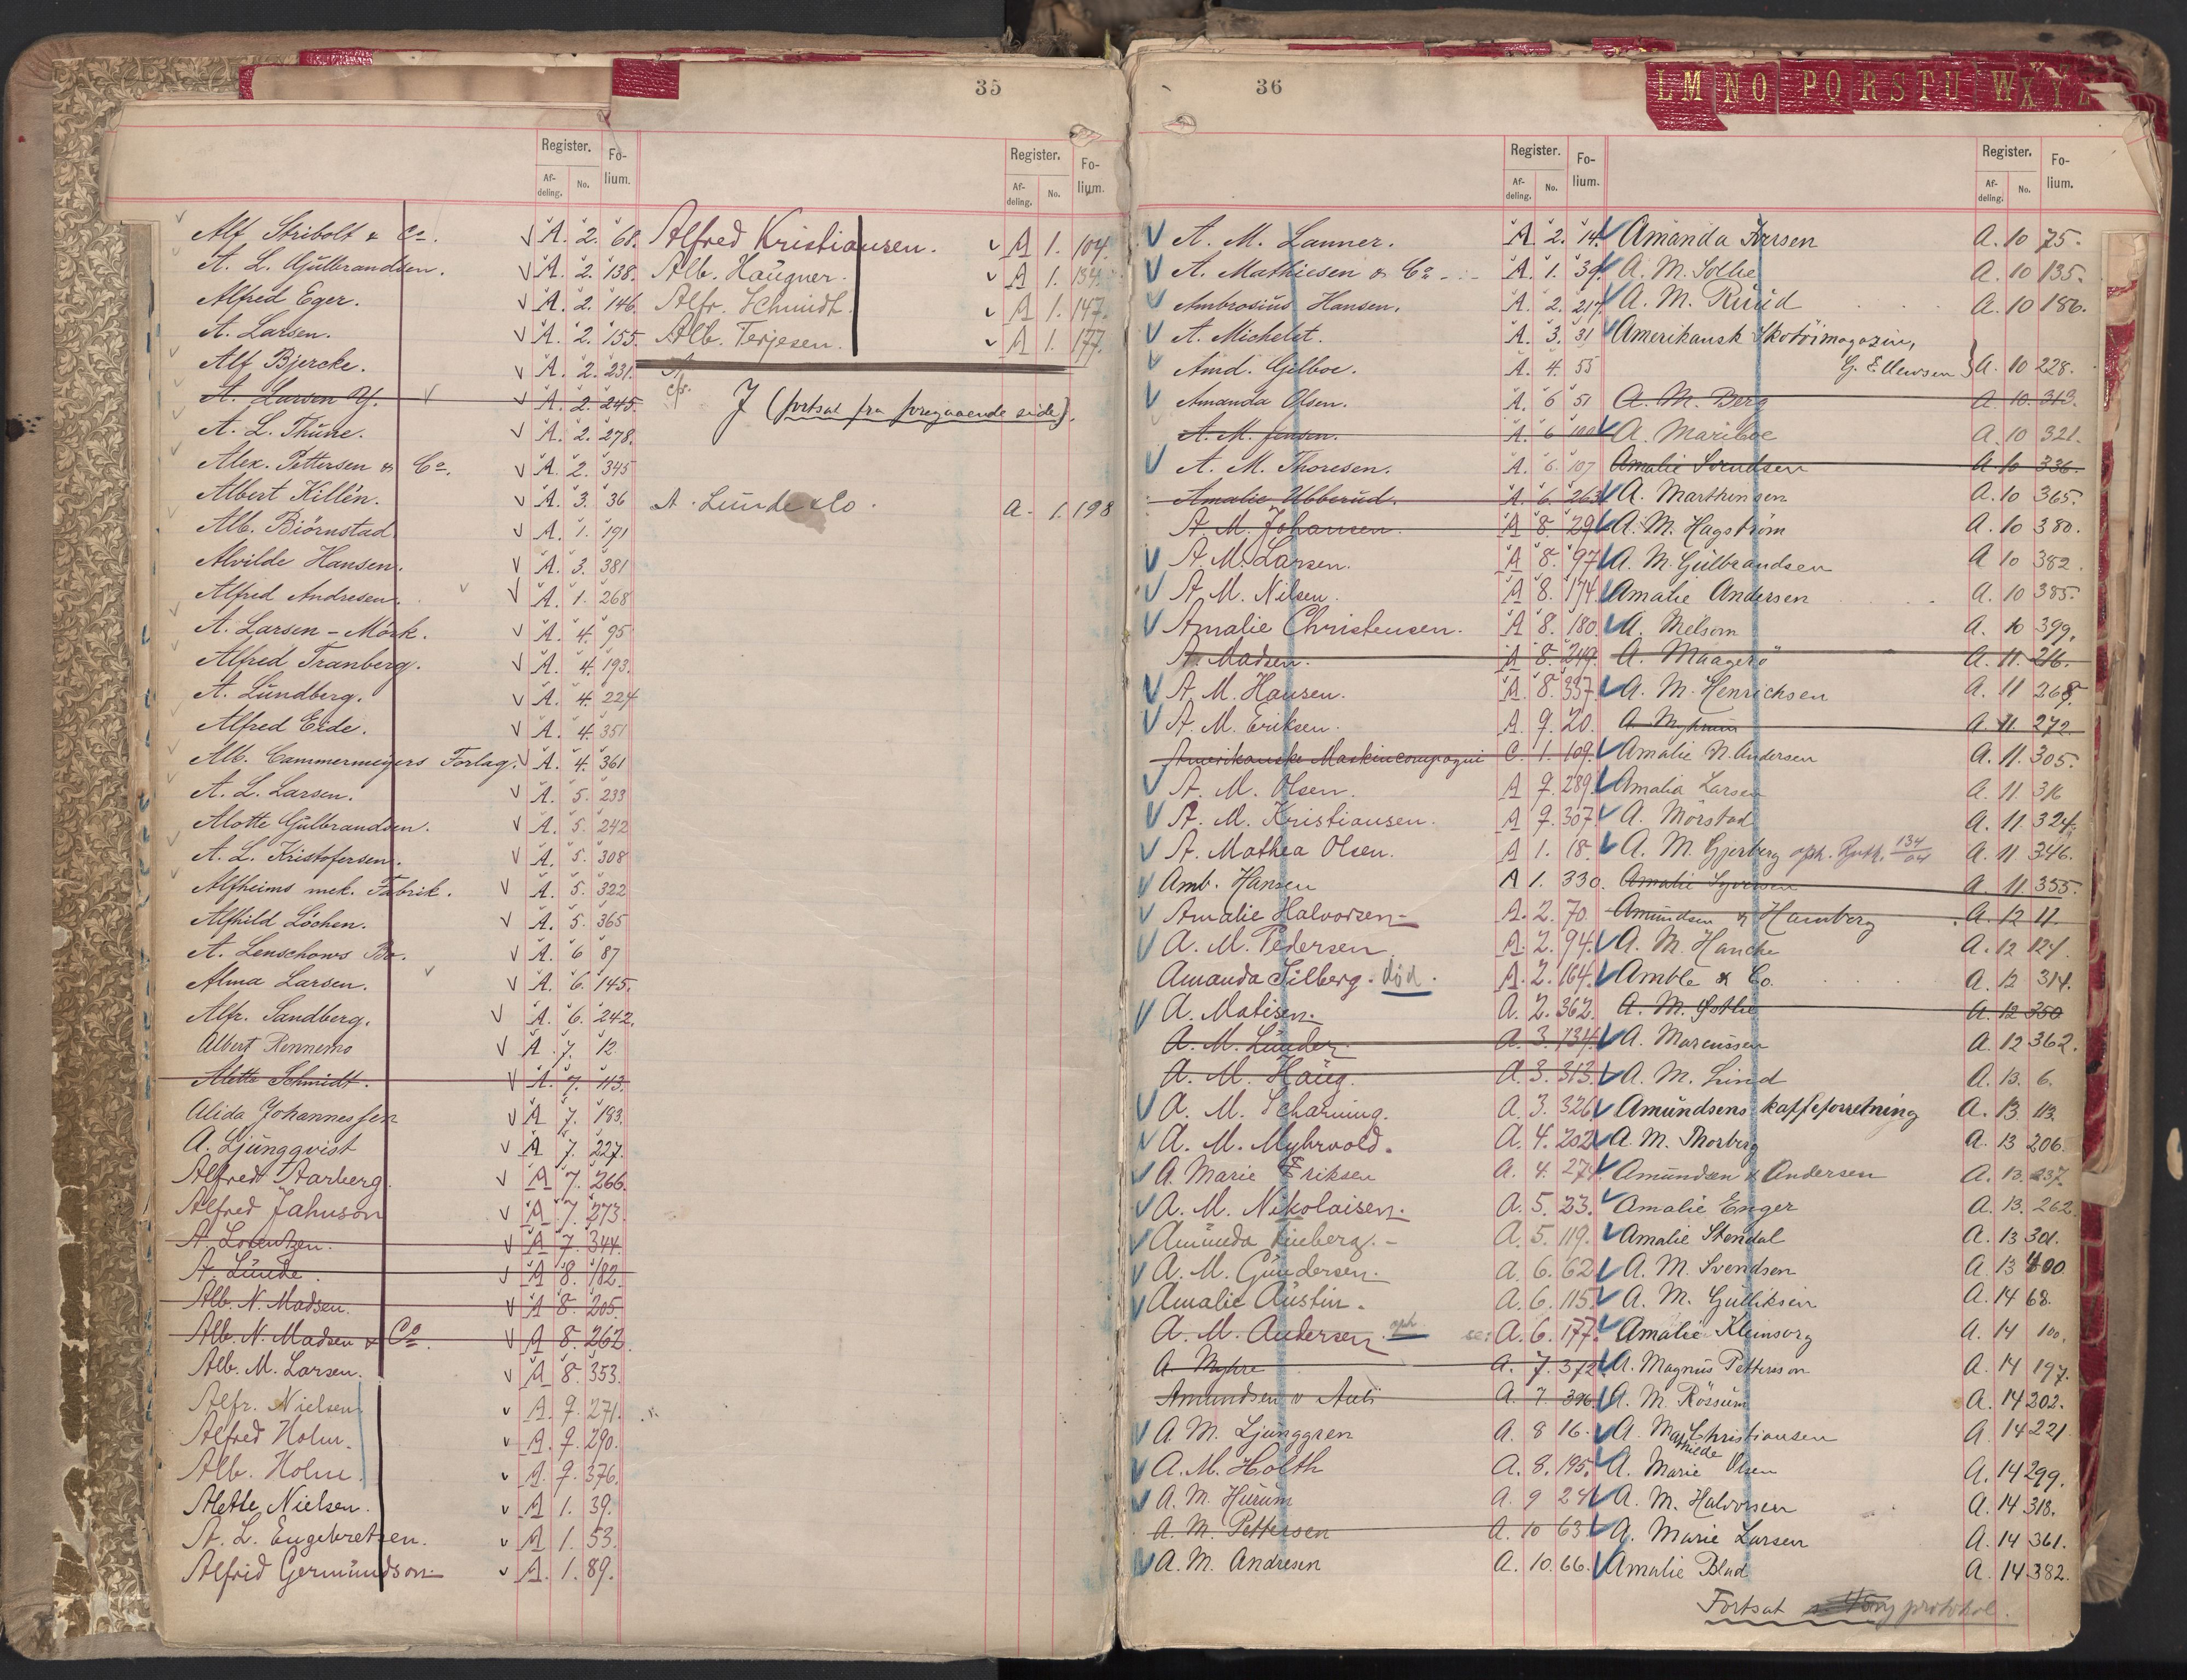 35
Register.
Fo-
lium.
Af-
deling.
No.
Register.
Fo-
lium.
Af-
deling.
No.
Alf Stribolt & Co. A. 2. 68.
A. L. Gulbrandsen. A. 2. 138.
Alfred Eger. A. 2. 146.
A. Larsen. A. 2. 155.
Alf Bjercke. A. 2. 231.
A. Larsen Y. A. 2. 245.
A. L. Thune. A. 2. 278.
Alex. Pettersen & Co. A. 2. 345
Albert Killén. A. 3. 36
Alb. Biörnstad A. 1. 191
Alvilde Hansen. A. 3. 381
Alfred Andresen. A. 1. 268
A. Larsen-Mörk. A. 4. 95
Alfred Tranberg. A. 4. 193.
A. Lundberg. A. 4. 224
Alfred Eide. A. 4. 351
Alb. Cammermeyers Forlag. A. 4. 361
A. L. Larsen. A. 5. 233
Alotte Gulbrandsen. A. 5. 242
A. L. Kristofersen. A. 5. 308
Alfheims mek. Fabrik. A. 5. 322
Alfhild Löchen. A. 5. 365
A. Lenschows Bo. A. 6 87
Alma Larsen. A. 6. 145.
Alfr. Sandberg. A. 6. 242.
Albert Rennemo A. 7. 12.
Alette Schmidt. A. 7. 113.
Alida Johannessen A 7. 193.
A. Ljungqvist A 7. 227.
Alfredt Aarberg. A 7. 266.
Alfred Jahnson A 7. 273.
A. Lorentzen. A 7. 344.
A. Lunde. A 8. 182.
Alb. N. Madsen. A 8. 205.
Alb. N. Madsen & Co. A 8. 262.
Alb. M. Larsen. A 8. 353.
Alfr. Nielsen A. 9. 271.
Alfred Holm. A. 9. 290.
Alb. Holm. A. 9. 376.
Alette Nielsen. A 1. 39.
A. L. Engebretsen. A 1. 53.
Alfrid Germundson A. 1. 89.
Alfred Kristiansen. A 1. 104.
Alb. Haugner. A 1. 134.
Alfr. Schmidt. A 1. 147.
Alb. Terjesen. A 1. 177.
cfr. J (fortsat fra foregaaende side).
A. Lunde & Co. A. 1. 198
36
L M N O P Q R S T U W X Y Z
Register.
Fo-
lium.
Af-
deling.
No.
Register.
Fo-
lium.
Af-
deling.
No.
A. M. Lanner. A. 2. 14.
A. Mathiesen & Co. A. 1. 39.
Ambrosius Hansen. A. 2. 217.
A. Michelet. A. 3. 31
Amd. Gilboe. A. 4. 55
Amanda Olsen. A. 6 51
A. M. Jensen. A. 6
A. M. Thoresen. A. 6. 107
Amalie Ubberud. A. 6. 263
A. M. Johansen. A 8. 29
A. M. Larsen. A 8. 97
A. M. Nilsen. A 8. 174.
Amalie Christensen. A 8. 180.
A. Madsen. A 8. 249.
A. M. Hansen. A. 8. 337.
A. M. Eriksen. A. 9. 20.
Amerikanske Maskincompagni C. 1. 109.
A. M. Olsen. A 9. 289.
A. M. Kristiansen. A 9. 307
A. Mathea Olsen. A 1. 18.
Amb. Hansen A 1. 330.
Amalie Halvorsen A. 2. 70.
A. M. Pedersen A. 2. 94.
Amanda Silberg. död. A. 2. 164.
A. Matisen. A. 2. 362.
A. M. Lunder A. 3. 134.
A. M. Haug. A. 3. 313.
A. M. Scharning. A. 3. 326
A. M. Myhrvold. A. 4. 202
A. Marie Eriksen A. 4. 274.
A. M. Nikolaisen. A. 5. 23.
Amunda Lieberg. A. 5. 119.
A. M. Gundersen. A. 6. 62
Amalie Austin. A. 6. 115.
A. M. Andersen. oph. A. 6. 177.
A. Myhre A. 7. 372
Amundsen & Auli A. 7. 396
A. M. Ljunggren A. 8 16.
A. M. Holth A. 8. 195.
A. M. Hurum A. 9 24
A. M. Pettersen A. 10 63.
A. M. Andresen A. 10. 66.
Amanda Iversen A. 10 75.
A. M. Sollie A. 10 135.
A. M. Ruud A. 10 186.
Amerikansk Skotöimagazin,
G. Ellewsen A. 10 228.
A. M. Berg A. 10. 313.
A. Mariboe A. 10 321.
Amalie Svendsen A. 10 336.
A. Marthinsen A. 10 365.
A. M. Hagström A. 10 380.
A. M. Gulbrandsen A 10 382.
Amalie Andersen A. 10 385.
A. Melsom A. 10 399.
A. Maagerö A. 11. 216.
A. M. Henrichsen A. 11 268.
A. M. A. 11. 272.
Amalie N. Andersen A. 11. 305.
Amalia Larsen A. 11. 316
A. Mörstad A. 11. 324.
A. M. Gjerberg oph. 134/04 A. 11 346.
Amalie Syversen A. 11. 355.
Amundsen & Hamberg A. 12 11.
A. M. Hancke A. 12 124.
Amble & Co. A. 12 314.
A. M. Östlie A. 12 350
A. Marcussen A. 12 362.
A. M. Lind A. 13. 6.
Amundsens kaffeforretning A. 13 113.
A. M. Thorberg A. 13 206.
Amundsen & Andersen A. 13. 237.
Amalie Enger A. 13. 262.
Amalie Stendal A. 13 301.
A. M. Svendsen A. 13 400
A. M. Gulliksen A. 14 68.
Amalie Kleinsorg A. 14 100.
A. Magnus Pettersson A. 14 197.
A. M. Rössum A. 14 202.
A. Mathilde Christiansen A. 14 221
A. Marie Olsen A. 14 299.
A. M. Halvorsen A. 14 318.
A. Marie Larsen A. 14 361.
Amalie Blad A. 14 382.
Fortsat protokol.